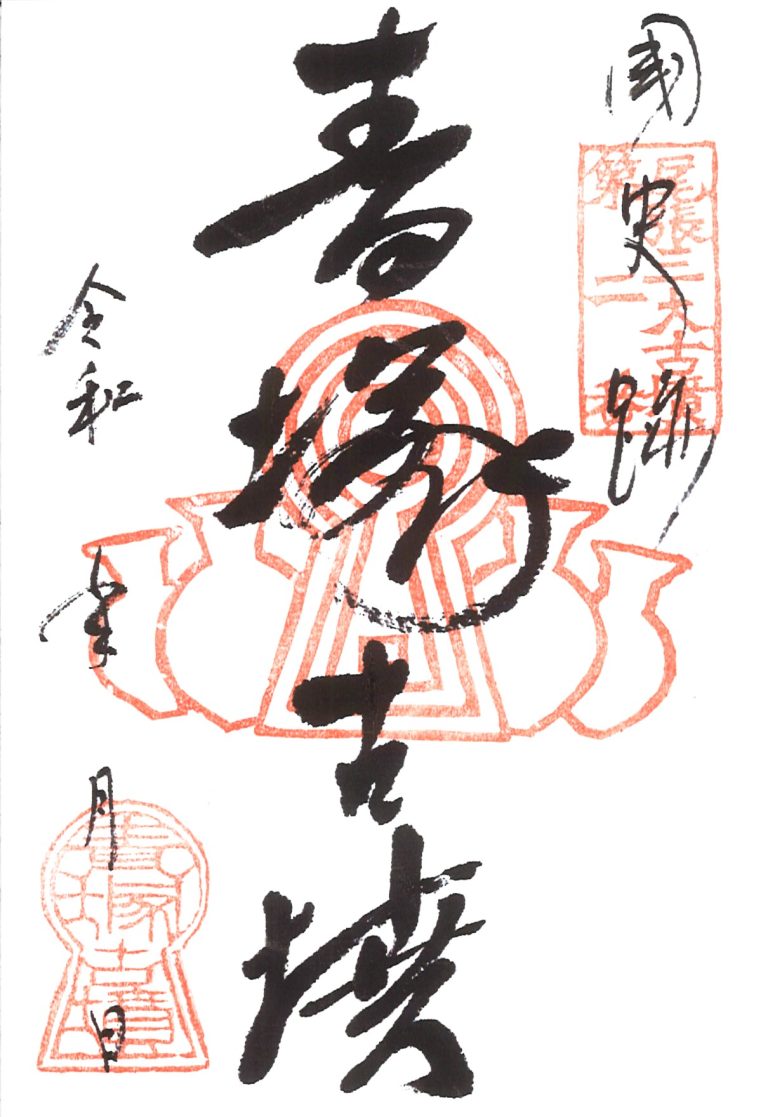 國史跡
尾張三大古墳
第二番
青塚古墳
令和 年 月 日
青塚古墳